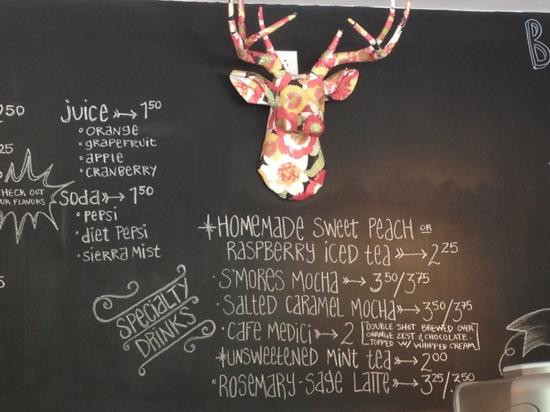 B
250
25
CHECK OUT
UR FLAVORS
JUICE → 1.50
• ORANGE
• GRAPEFRUIT
• APPLE
• CRANBERRY
SODA → 1.50
• PEPSI
• DIET PEPSI
• SIERRA MIST
SPECIALTY
DRINKS
*HOMEMADE SWEET PEACH OR
RASPBERRY ICED TEA → 2.25
• S'MORES MOCHA → 3.50/3.75
• SALTED CARAMEL MOCHA → 3.50/3.75
• CAFE MEDICI → 2 [DOUBLE SHOT BREWED OVER
ORANGE ZEST & CHOCOLATE.
TOPPED W/ WHIPPED CREAM]
*UNSWEETENED MINT TEA → 2.00
• ROSEMARY-SAGE LATTE → 3.25/3.50